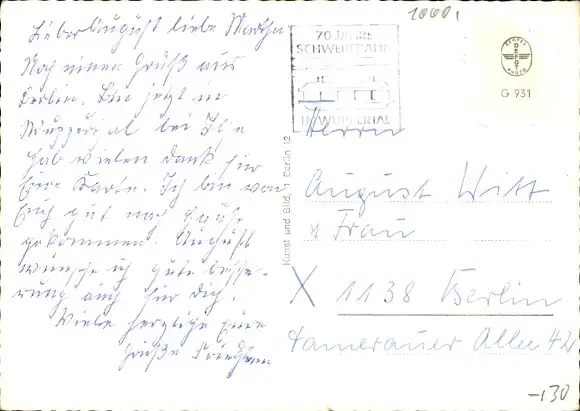 Lieber August liebe Martha
Noch einen Gruß aus
Berlin. Bin jetzt in
Wuppertal bei
Hab vielen Dank für
Eure Karte. Ich bin von
Euch gut nach Hause
gekommen. August
wünsche ich gute Besse-
rung auch für Dich.
Viele herzliche Eure
Grüße
1000,
70 JAHRE
SCHWEBEBAHN
IN WUPPERTAL
ECHTES
FOTO
G 931
Kunst und Bild, 1 Berlin 12
Herrn
August Witt
u Frau
X 1138 Berlin
Kamerauer Allee 42
-130